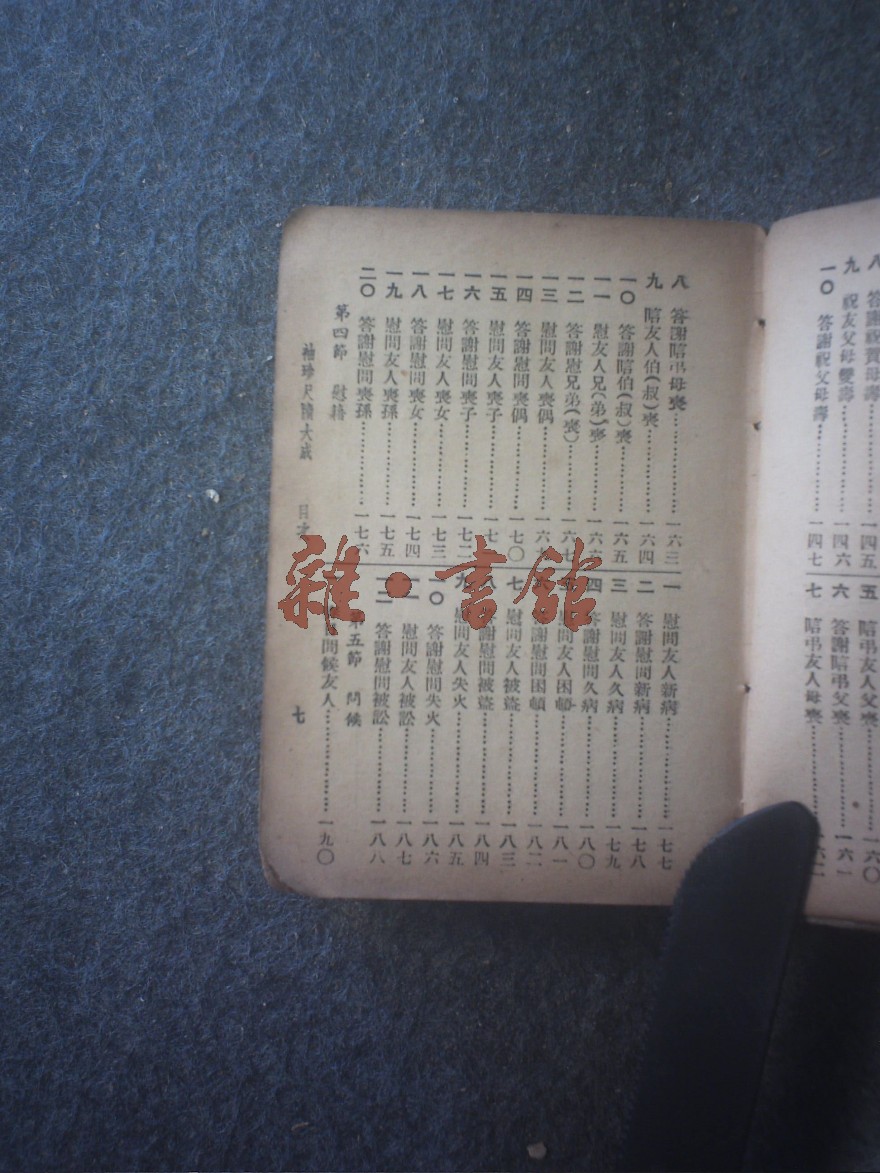 八 答謝陪弔母喪 一六三
九 陪友人伯(叔)喪 一六四
一〇 答謝陪伯(叔)喪 一六五
一一 慰友人兄(弟)喪 一六六
一二 答謝慰兄弟(喪) 一六七
一三 慰問友人喪偶 一六
一四 答謝慰問喪偶 一七〇
一五 慰問友人喪子 一七
一六 答謝慰問喪子 一七二
一七 慰問友人喪女 一七三
一八 答謝慰問喪女 一七四
一九 慰問友人喪孫 一七五
二〇 答謝慰問喪孫 一七六
第四節 慰藉
一 慰問友人新病 一七七
二 答謝慰問新病 一七八
三 慰問友人久病 一七九
四 答謝慰問久病 一八〇
慰問友人困頓 一八一
答謝慰問困頓 一八二
七 慰問友人被盜 一八三
八 答謝慰問被盜 一八四
九 慰問友人失火 一八五
一〇 答謝慰問失火 一八六
一一 慰問友人被訟 一八七
一二 答謝慰問被訟 一八八
第五節 問候
問候友人 一九〇
袖珍尺牘大成 目 七
八 答謝祝賀母壽 一四五
九 祝友父母雙壽 一四六
一〇 答謝祝父母壽 一四七
五 陪弔友人父喪 一六〇
六 答謝陪弔父喪 一六一
七 陪弔友人母喪 六二
雜·書館